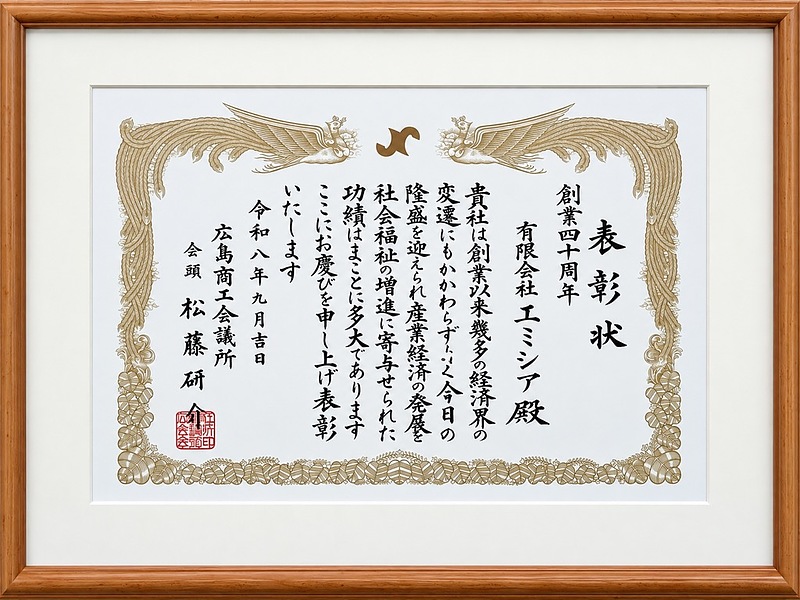 表彰状
創業四十周年
有限会社エミシア殿
貴社は創業以来幾多の経済界の
変遷にもかかわらずよく今日の
隆盛を迎えられ産業経済の発展を
社会福祉の増進に寄与せられた
功績はまことに多大であります
ここにお慶びを申し上げ表彰
いたします
令和八年九月吉日
広島商工会議所
会頭 松藤研介